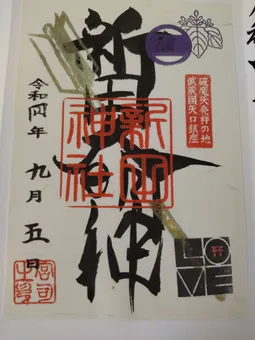 破魔矢発祥の地
武蔵國矢口鎮座
新田大神
新田
神社
令和四年 九月五日
LO
VE
宮司